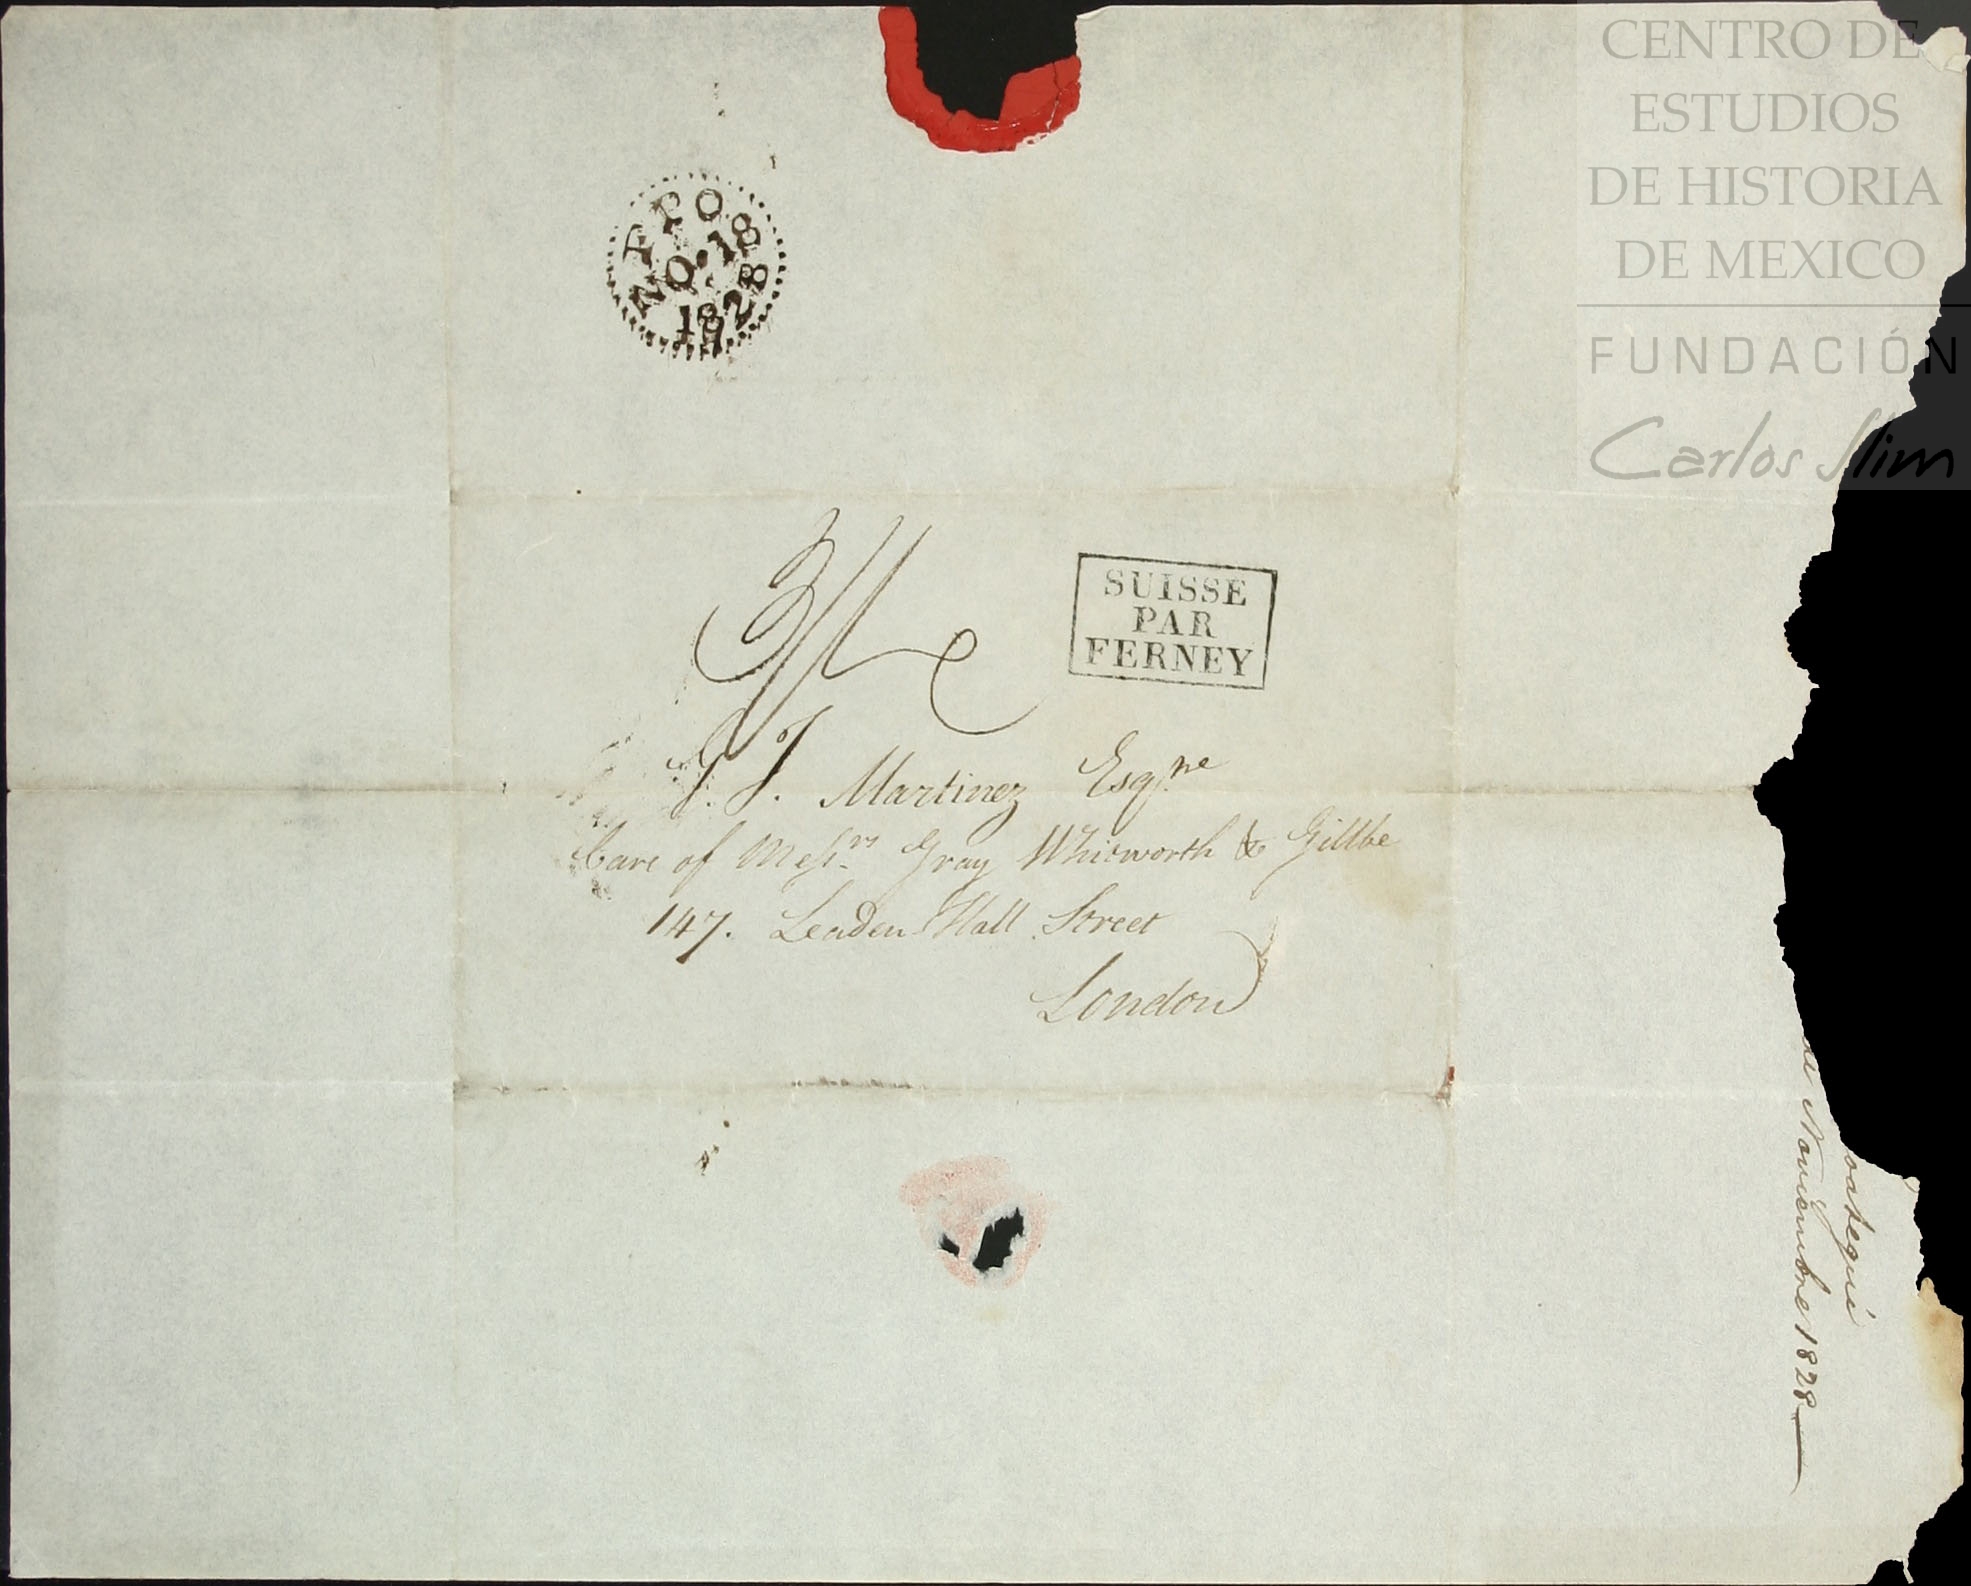 CENTRO DE
ESTUDIOS
DE HISTORIA
DE MEXICO
FUNDACIÓN
Carlos Slim
FPO
NO·18
1828
SUISSE
PAR
FERNEY
J. J. Martinez Esqre
Care of Messrs Gray Whitworth & Gillbe
147. Leaden Hall Street
London
oategui
de Noviembre 1828